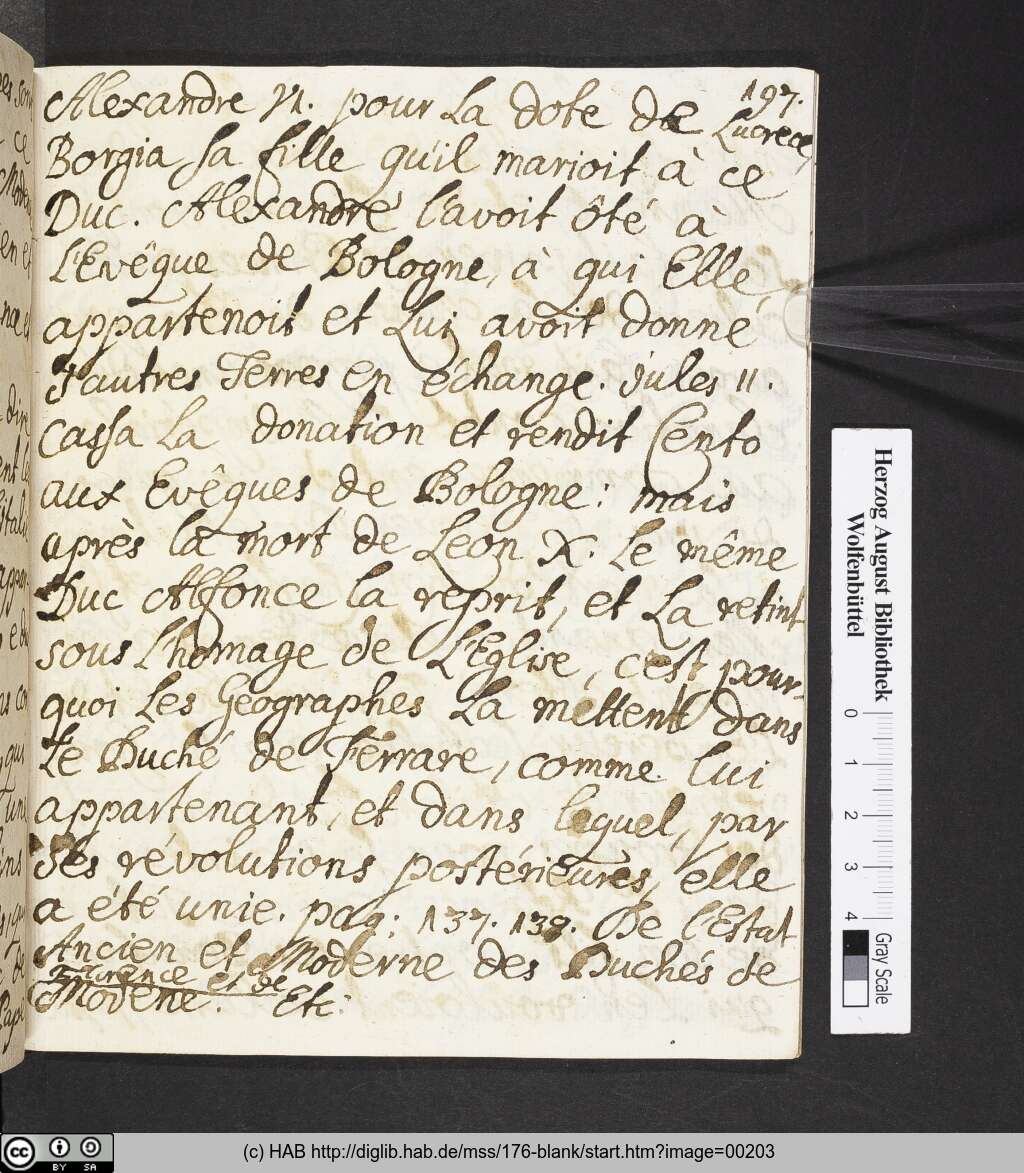 197.
Alexandre VI. pour La dote de Lucrece
Borgia sa fille qu'il marioit à ce
Duc. Alexandre l'avoit ôté à
L'Evêque de Bologne, à qui Elle
appartenoit et Lui avoit donné
d'autres Terres en échange. Jules II.
cassa La donation et rendit Cento
aux Evêques de Bologne: mais
après la mort de Leon X. Le même
Duc Alfonce la reprit, et La retint
sous l'homage de L'Eglise, c'est pour-
quoi Les Geographes La mettent dans
Le Duché de Ferrare, comme lui
appartenant, et dans lequel, par
des révolutions postérieures, elle
a été unie. pag: 137. 138. De l'Estat
Ancien et Moderne des Duchés de
et de
Modene. Etc:
Herzog August Bibliothek
Wolfenbüttel
0 1 2 3 4
Gray Scale
(c) HAB http://diglib.hab.de/mss/176-blank/start.htm?image=00203
cc BY SA